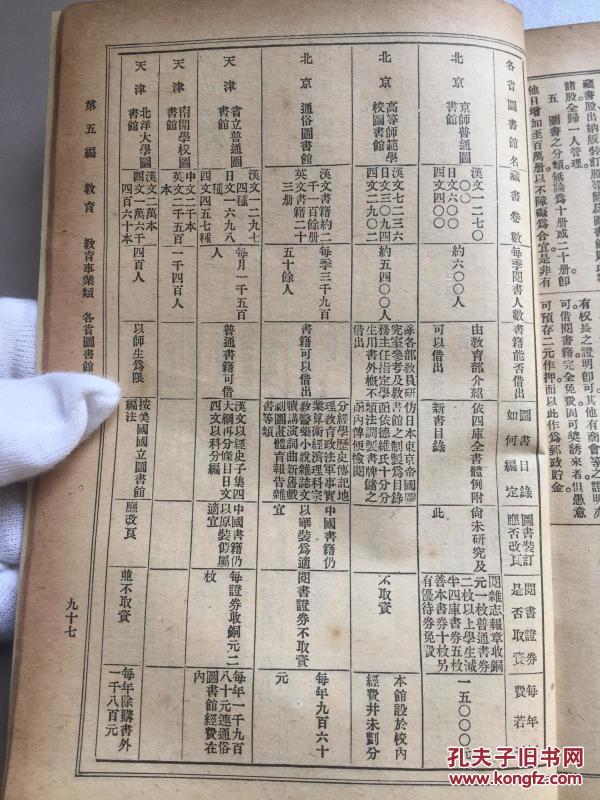 藏書股出納股裝訂股等
諸股全歸一人管理。
五　圖書之分類無論爲十册或二十册卽
他日增加至百萬册以不障礙爲合宜是非有
有校長之證明卽可。其他有商會等之證明亦
可。借閱書籍完全免費固可獎誘來者。但愚意
可預存二元作押而以此作爲郵政貯金。
各省圖書館名
藏書卷數
每季閱書人數
書籍能否借出
圖書目錄
如何編定
圖書裝訂
應否改頁
閱書證券
是否取資
每年
費若
北京
京師普通圖
書館
漢文一二七〇
〇〇
日文六〇〇
四文四〇〇
約六〇〇人
由教育部介紹
可以借出
依四庫全書體例附
新書目錄
尙未研究及
此
閱雜志報章收銅
元一枚普通書券
二枚以上學生減
半四庫書券五枚
善本書券十枚另
有優待券免費
一五〇〇〇
北京
高等師範學
校圖書館
漢文七二三六
日文三〇九四
西文二九〇二
約五四〇〇人
除各部教員研
究室參考及教
務主任指定學
生用書外概不
借出
仿日本東京帝國圖
書館之制製爲目錄
函依德維氏十分分
類法調製書牌儲之
函內俾便檢閱
不取資
本館設於校內
經費幷未劃分
北京
通俗圖書館
漢文書籍約二
千一百餘册
英文書籍二十
三册
每季三千九百
五十餘人
書籍可以借出
分經學歷史傳記地
理教育政法軍事實
業算術經濟理科宗
教醫藥小說雜誌文
牘講演詞曲新舊戲
劇圖畫體育報告雜
書等類
中國書籍仍
以華裝爲適
宜
閱書證券不取資
每年九百六十
元
天津
省立普通圖
書館
漢文一二九七
四種
日文一六九八
種
四文四五七種
每月一千五百
人
普通書籍可借
漢文以經史子集四
大綱再分條目日文
四文以科分編
中國書籍仍
以原裝似屬
適宜
每證券收銅元二
枚
每年一千九百
八十元連通俗
圖書館經費在
內
天津
南開學校圖
書館
中文二千本
英文二千五百
本
一千四百人
天津
北洋大學圖
書館
漢文二萬本
四文一萬六千
四百六十本
四百人
以師生爲限
按美國國立圖書館
編法
應改頁
並不取資
每年除購書外
一千八百元
第五編　教育　教育事業類　各省圖書館
九十七
孔夫子旧书网
www.kongfz.com